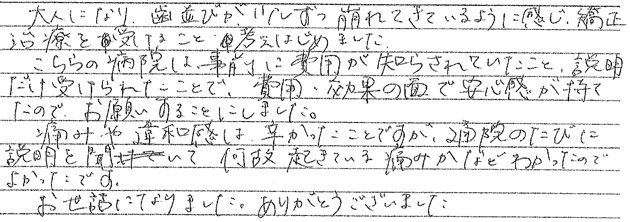 大人になり、歯並びが少しずつ崩れてきているように感じ、矯正
治療を受けること考えはじめました。
こちらの病院は、事前に費用が知らされていたこと、説明
だけ受けられたことで、費用・効果の面で安心感が持て
たので、お願いすることにしました。
痛みや違和感は、辛かったことですが、通院のたびに
説明を聞いて 何故起きている痛みかなどわかったので
よかったです。
お世話になりました。ありがとうございました。